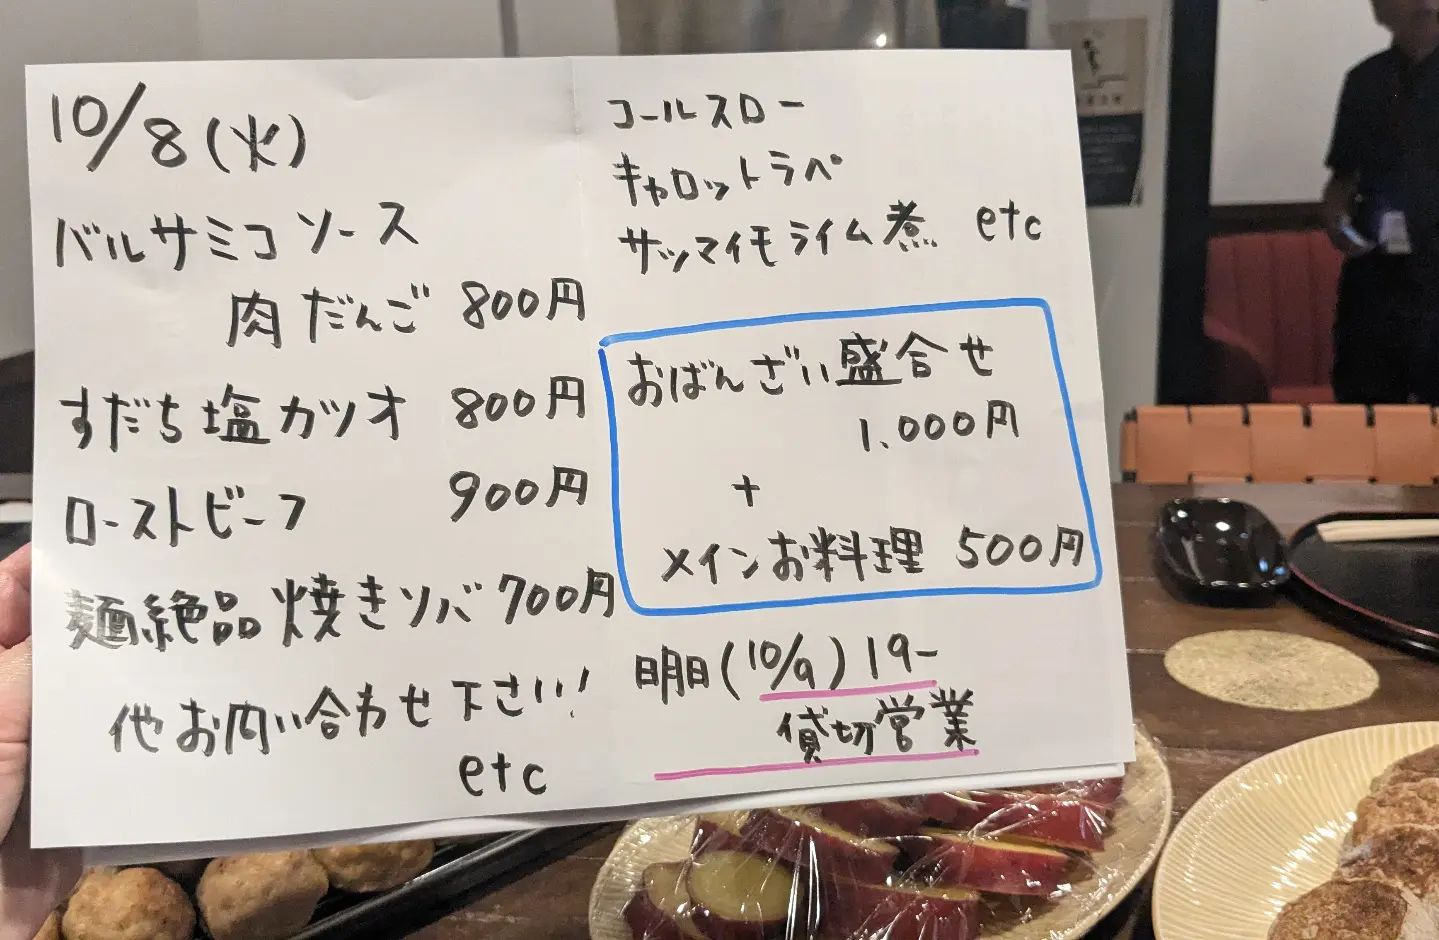 10/8(火)
バルサミコソース
肉だんご 800円
すだち塩カツオ 800円
ローストビーフ 900円
麺絶品焼きソバ 700円
他お問い合わせ下さい!
etc
コールスロー
キャロットラペ
サツマイモライム煮 etc
おばんざい盛合せ
1.000円
+
メインお料理 500円
明日(10/9)19-
貸切営業